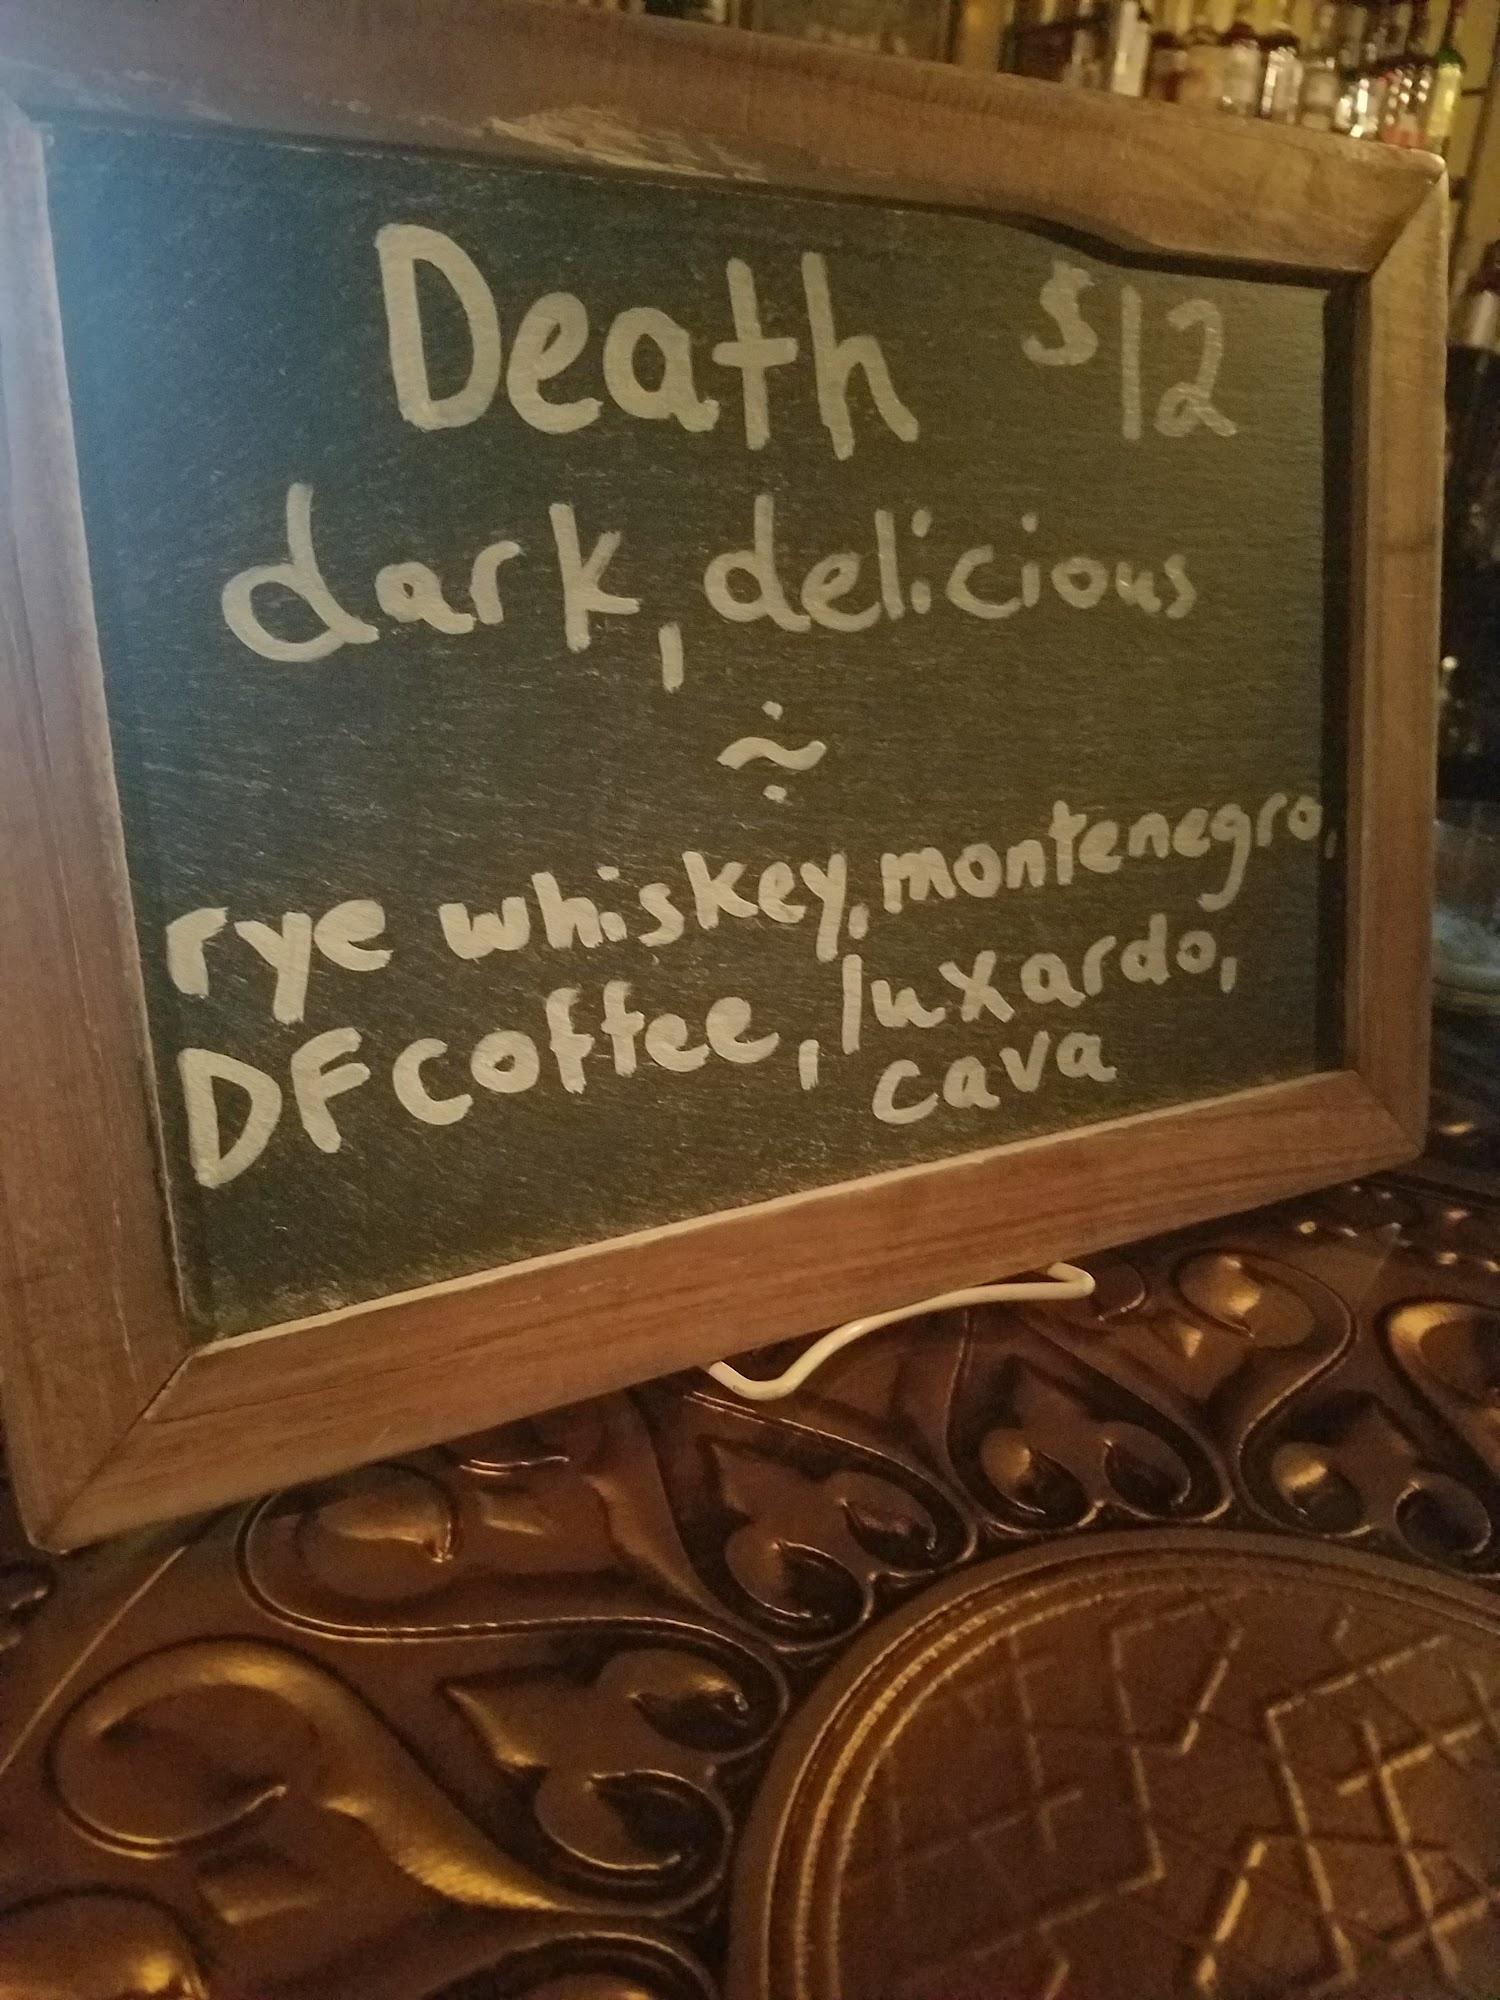 Death $12
dark, delicious
~
rye whiskey, montenegro,
DF coffee, luxardo,
cava